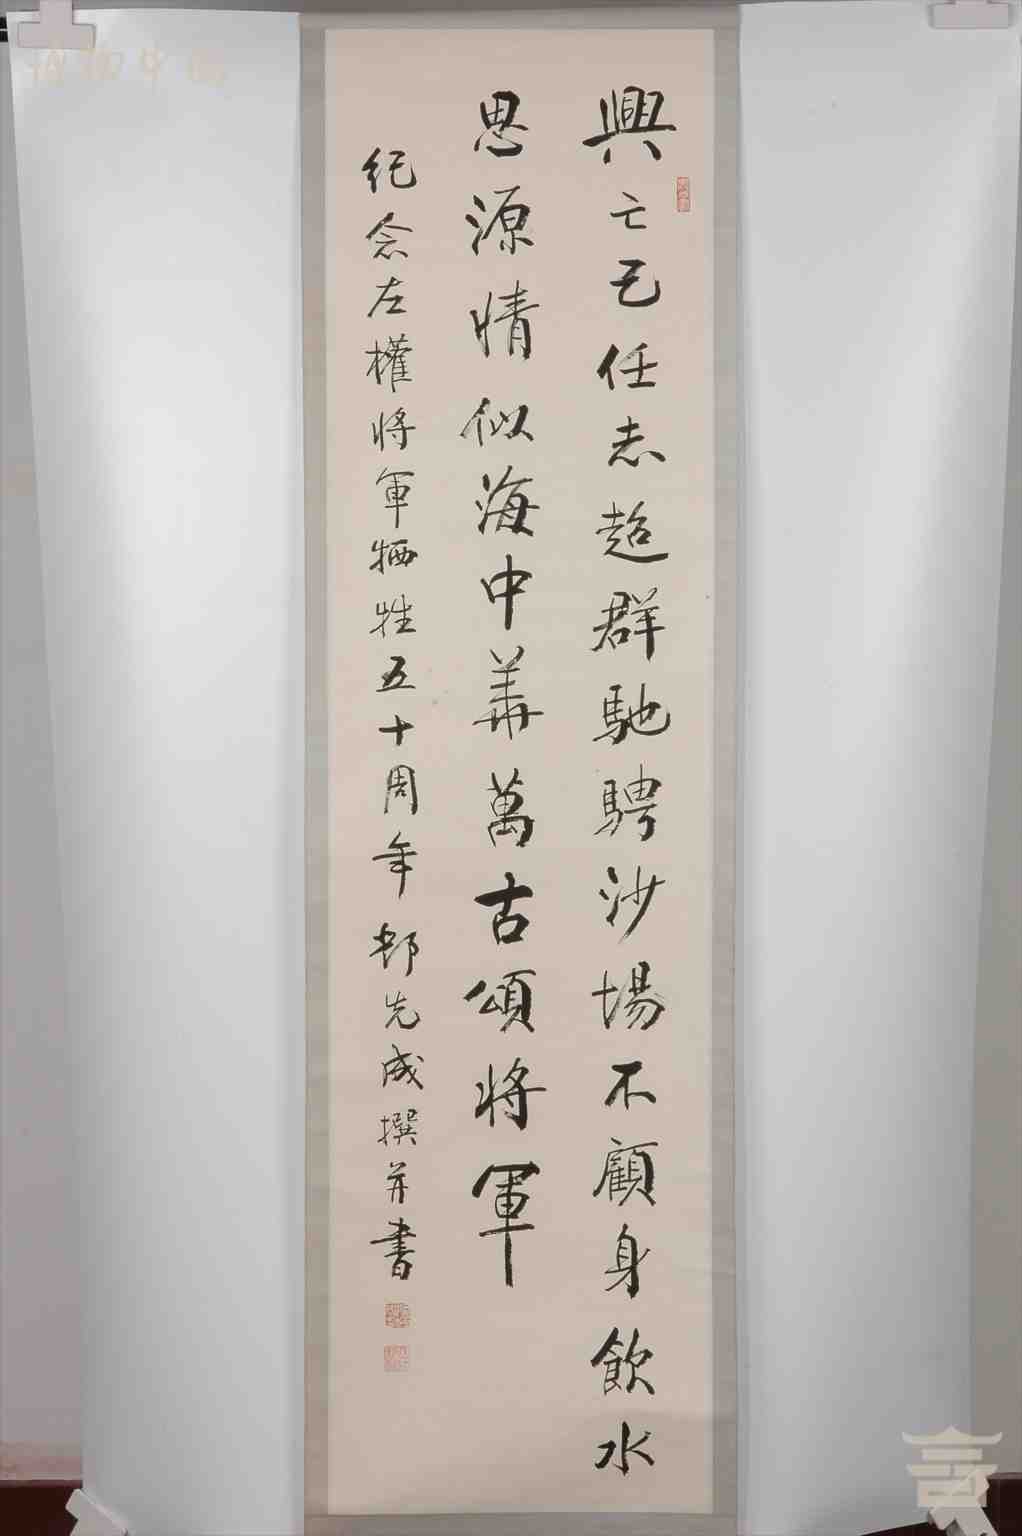 興亡己任志超群馳騁沙場不顧身飲水
思源情似海中華萬古頌將軍
纪念左權将軍牺牲五十周年郝先成撰并書